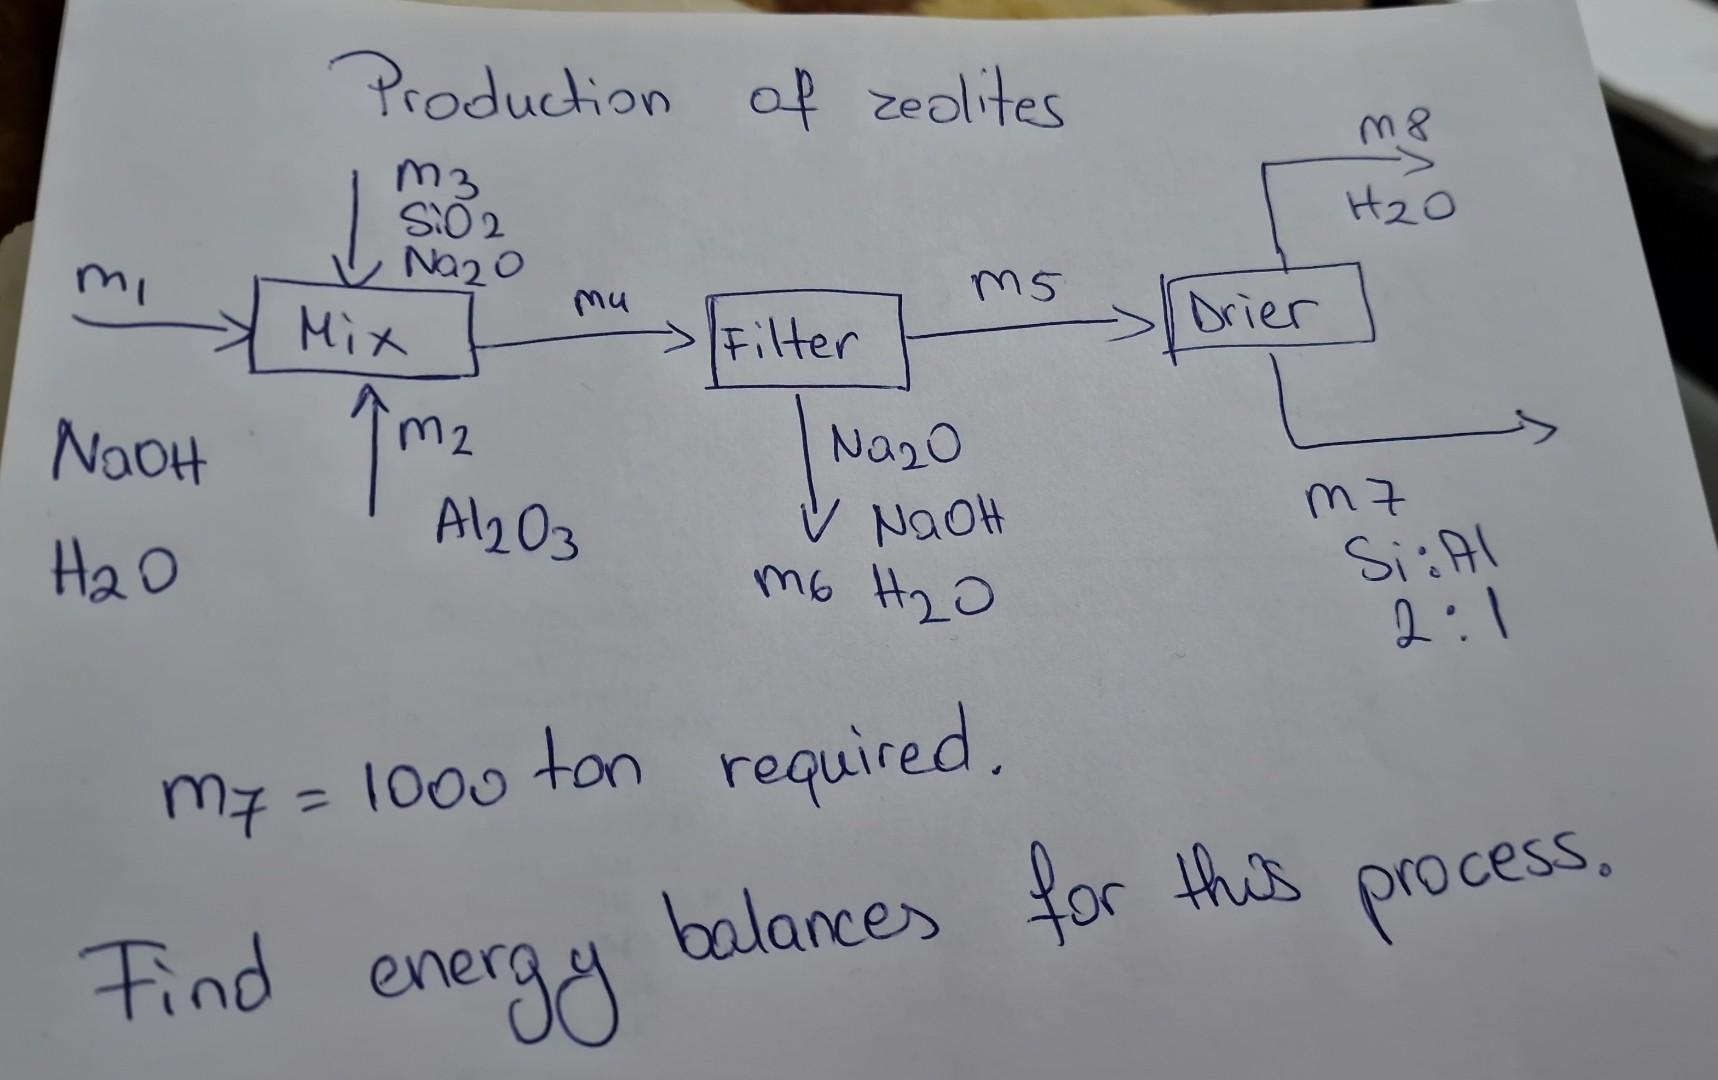 Production of zeolites
m3
SiO2
Na2O
m1
Mix
m4
Filter
m5
Drier
m8
H2O
NaOH
H2O
m2
Al2O3
Na2O
NaOH
m6 H2O
m7
Si:Al
2:1
m7 = 1000 ton required.
Find energy balances for this process.